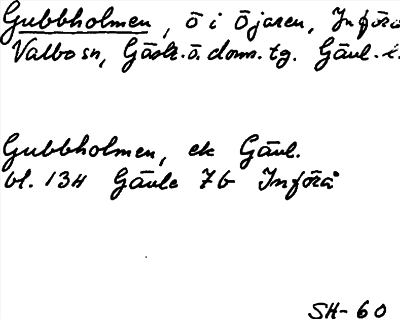 Gubbholmen, ö i Öjaren, Införå
Valbo sn, Gästr. ö. doms. tg. Gävl. l.
Gubbholmen, ek Gävl.
bl. 13H Gävle 7b Införå
SH-60